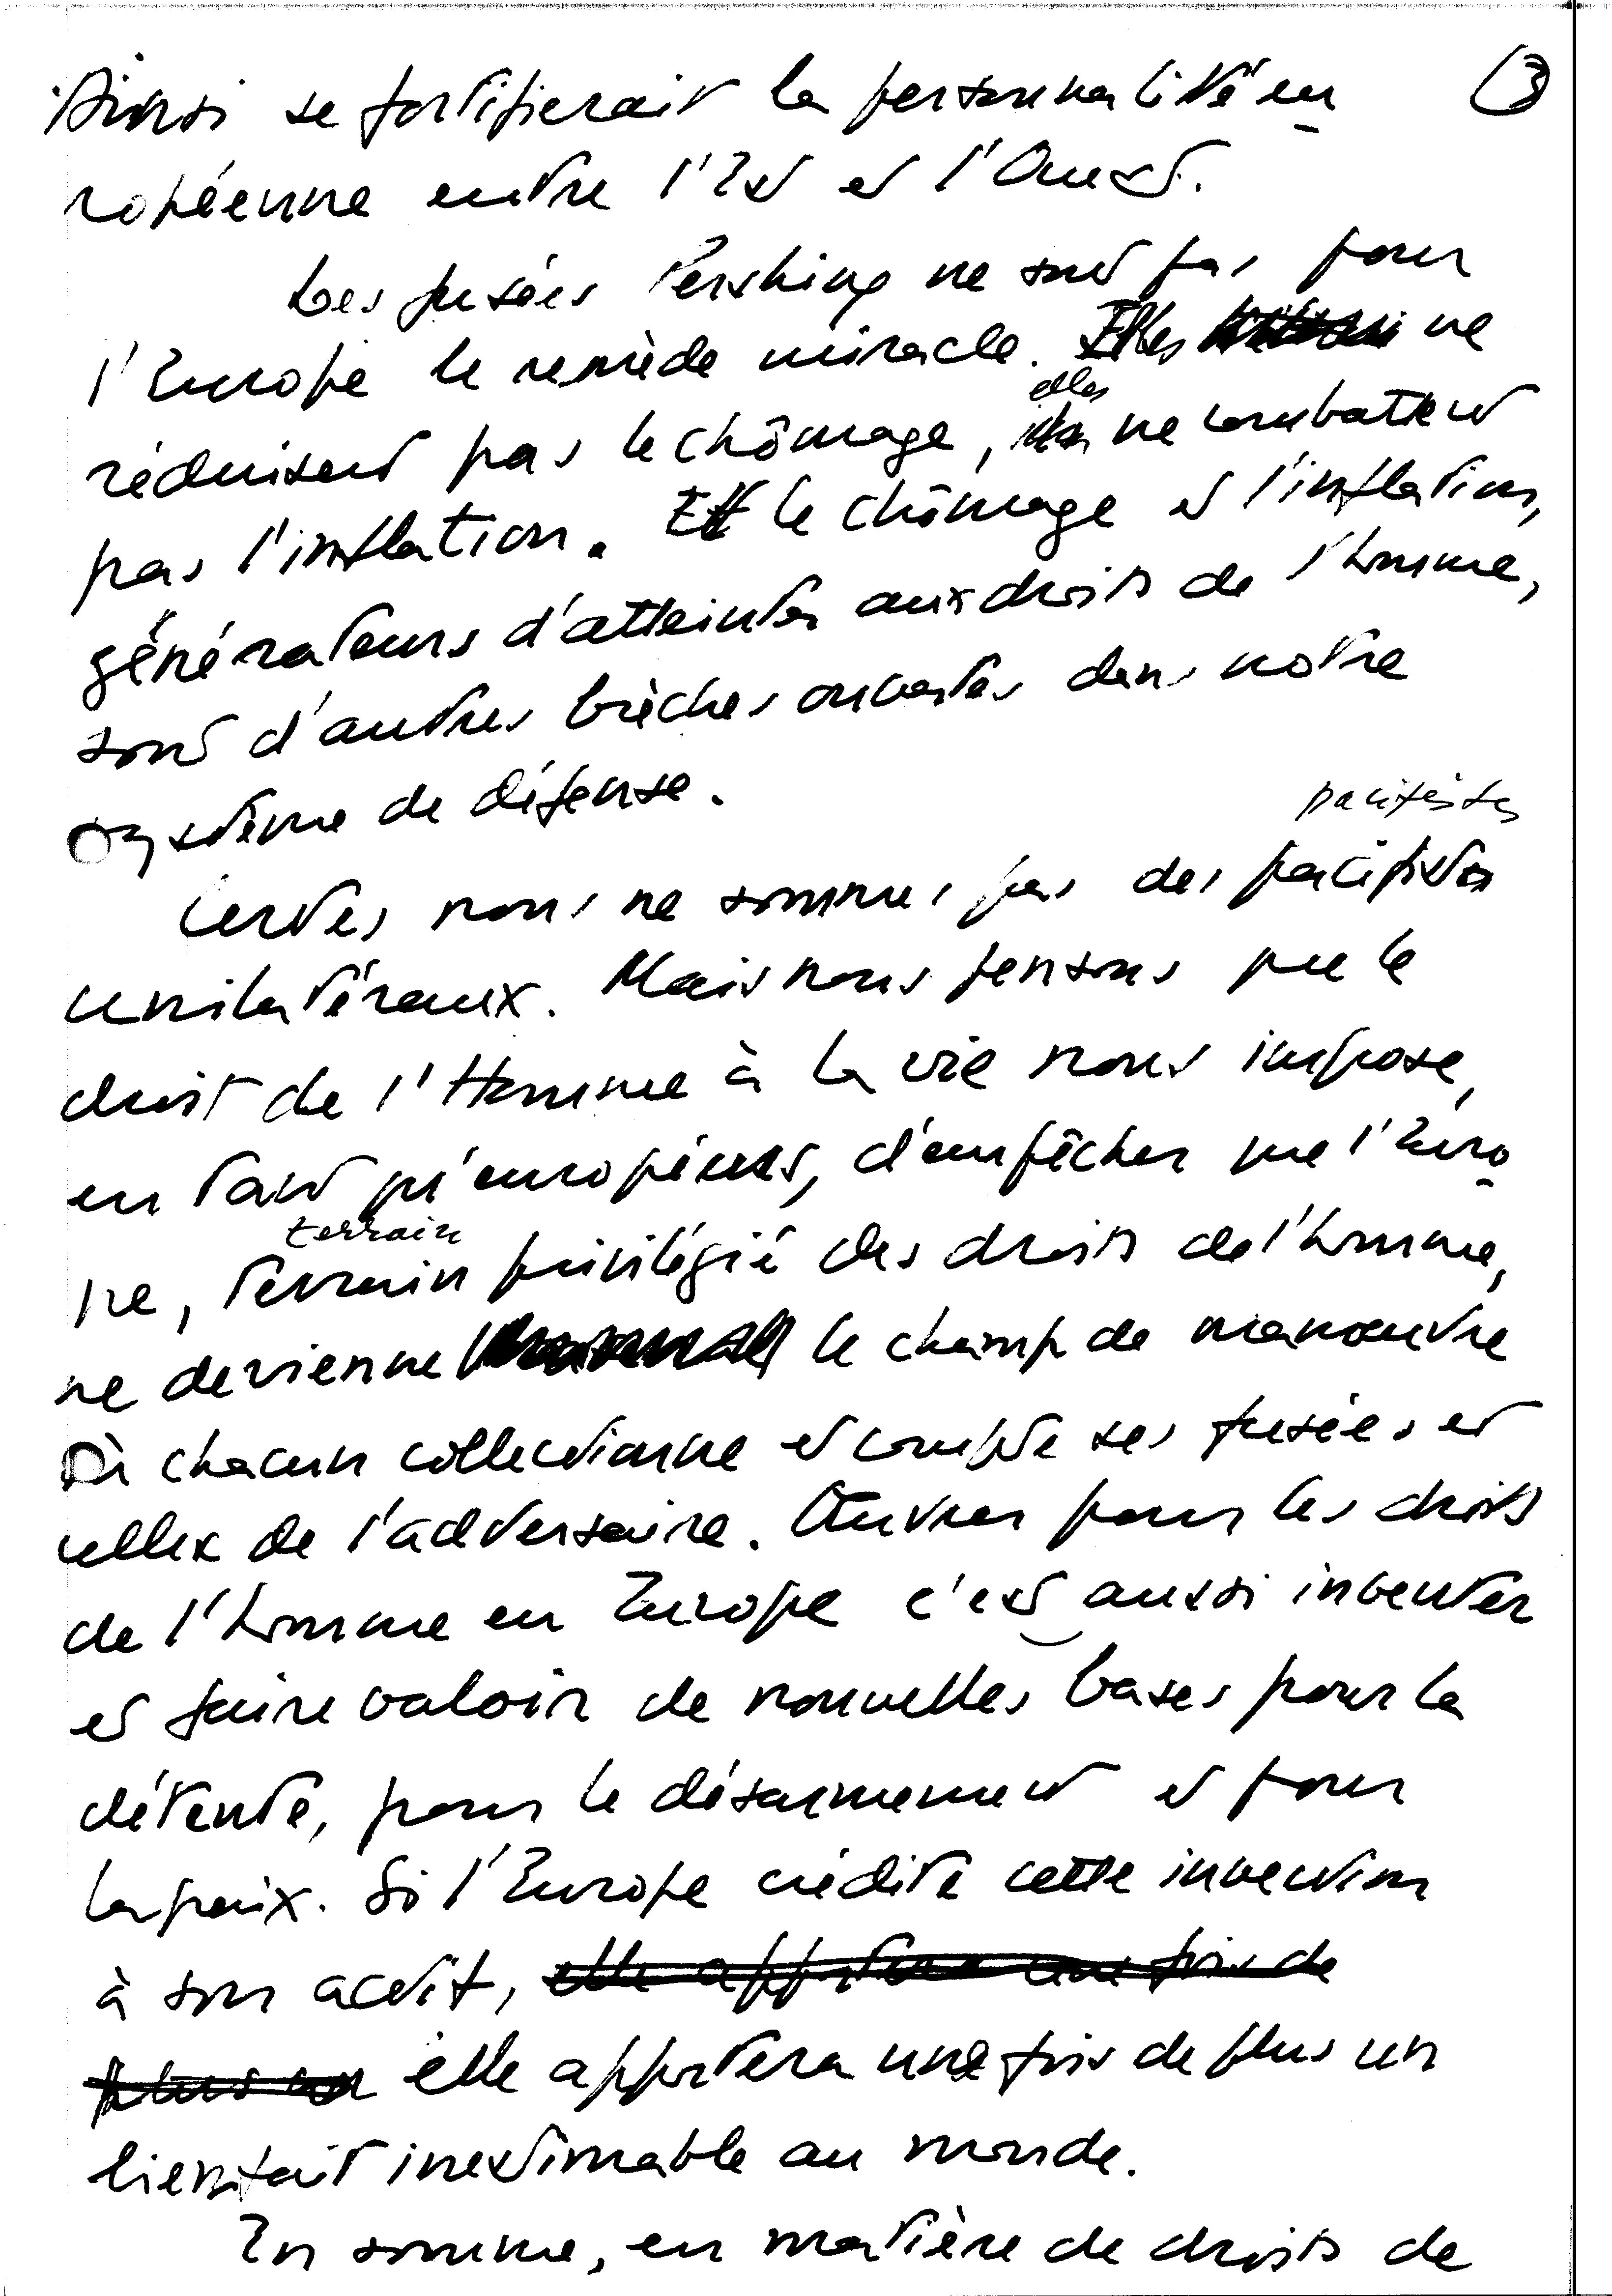 Ainsi se fortifierait la personnalité eu- ③
ropéenne entre l'Est et l'Ouest.
Les fusées Pershing ne sont pas pour
l'Europe le remède miracle. Elles ne
elles
réduisent pas le chômage, ne combattent
pas l'inflation. Et le chômage et l'inflation,
générateurs d'atteintes aux droits de l'homme,
sont d'autres brèches ouvertes dans notre
système de défense.
pacifistes
Certes nous ne sommes pas des pacifistes
unilatéraux. Mais nous pensons que le
droit de l'Homme à la vie nous impose,
en tant qu'européens, d'empêcher que l'Euro-
terrain
pe, terrain privilégié des droits de l'homme,
ne devienne le champ de manoeuvre
où chacun collectionne et compte ses fusées et
celles de l'adversaire. Oeuvrer pour les droits
de l'homme en Europe c'est aussi inventer
et faire valoir de nouvelles bases pour la
détente, pour le désarmement et pour
la paix. Si l'Europe crédite cette invention
à son actif, elle apportera une fois de
plus un elle apportera une fois de plus un
bienfait inestimable au monde.
En somme, en matière de droits de